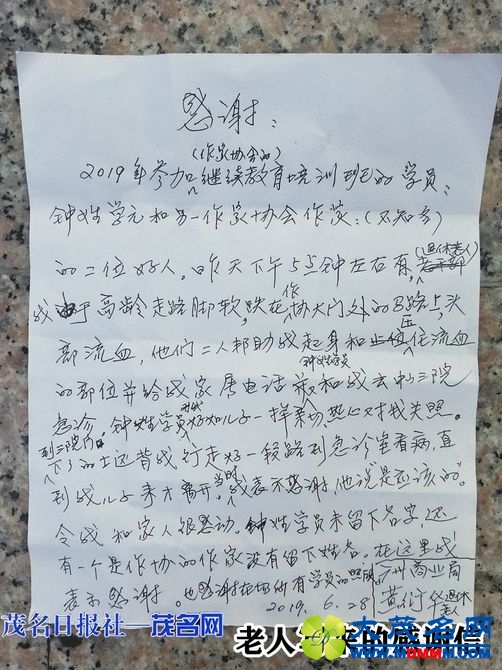 感谢：
(作家协会的)
2019年参加继续教育培训班的学员：
钟姓学元和另一作家协会作家：(不知名)
的二位好人。昨天下午5点钟左右有，(退休老人)
我由于高龄走路脚软，跌在作协大门外的马路上，头
部流血，他们二人帮助我起身和压住流血
的部位并给我家属电话并和我去中三院
钟姓学员
急诊，钟姓学员对我好如儿子一样亲切热心对我关照。
到三院门
下的士还背我行走好一段路到急诊室看病，直
到我儿子来才离开，当时我表示感谢他说"是应该的"。
令我和家人很感动。钟姓学员未留下名字，还
有一个是作协的作家没有留下姓名。在这里我
表示感谢。也感谢在场所有学员的照顾
广州商业局
黄衍华退休老人
2019.6.28
茂名日报社—茂名网